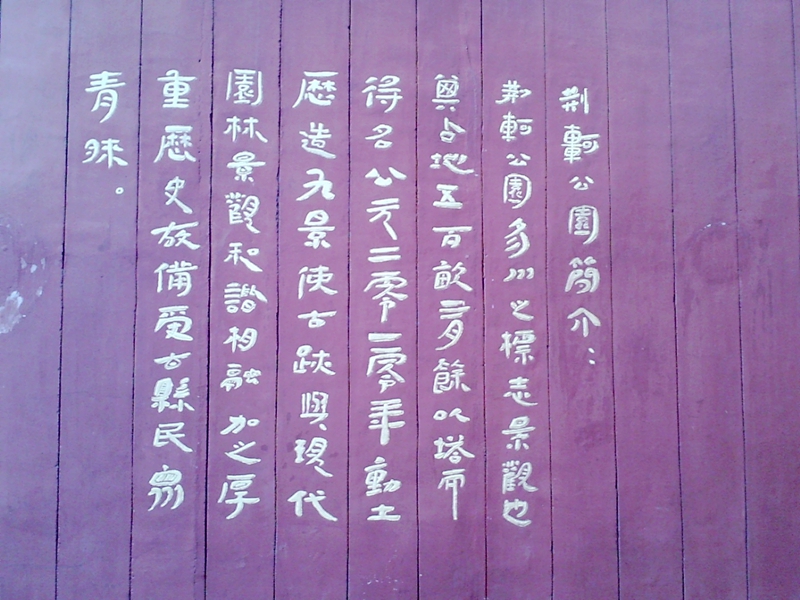 荆軻公園簡介：
荆軻公園易州之標志景觀也
占地五百畝有餘以塔而
得名公元二零一零年動土
歷造九景使古跡與現代
園林景觀和諧相融加之厚
重歷史故備受古縣民衆
青睞。